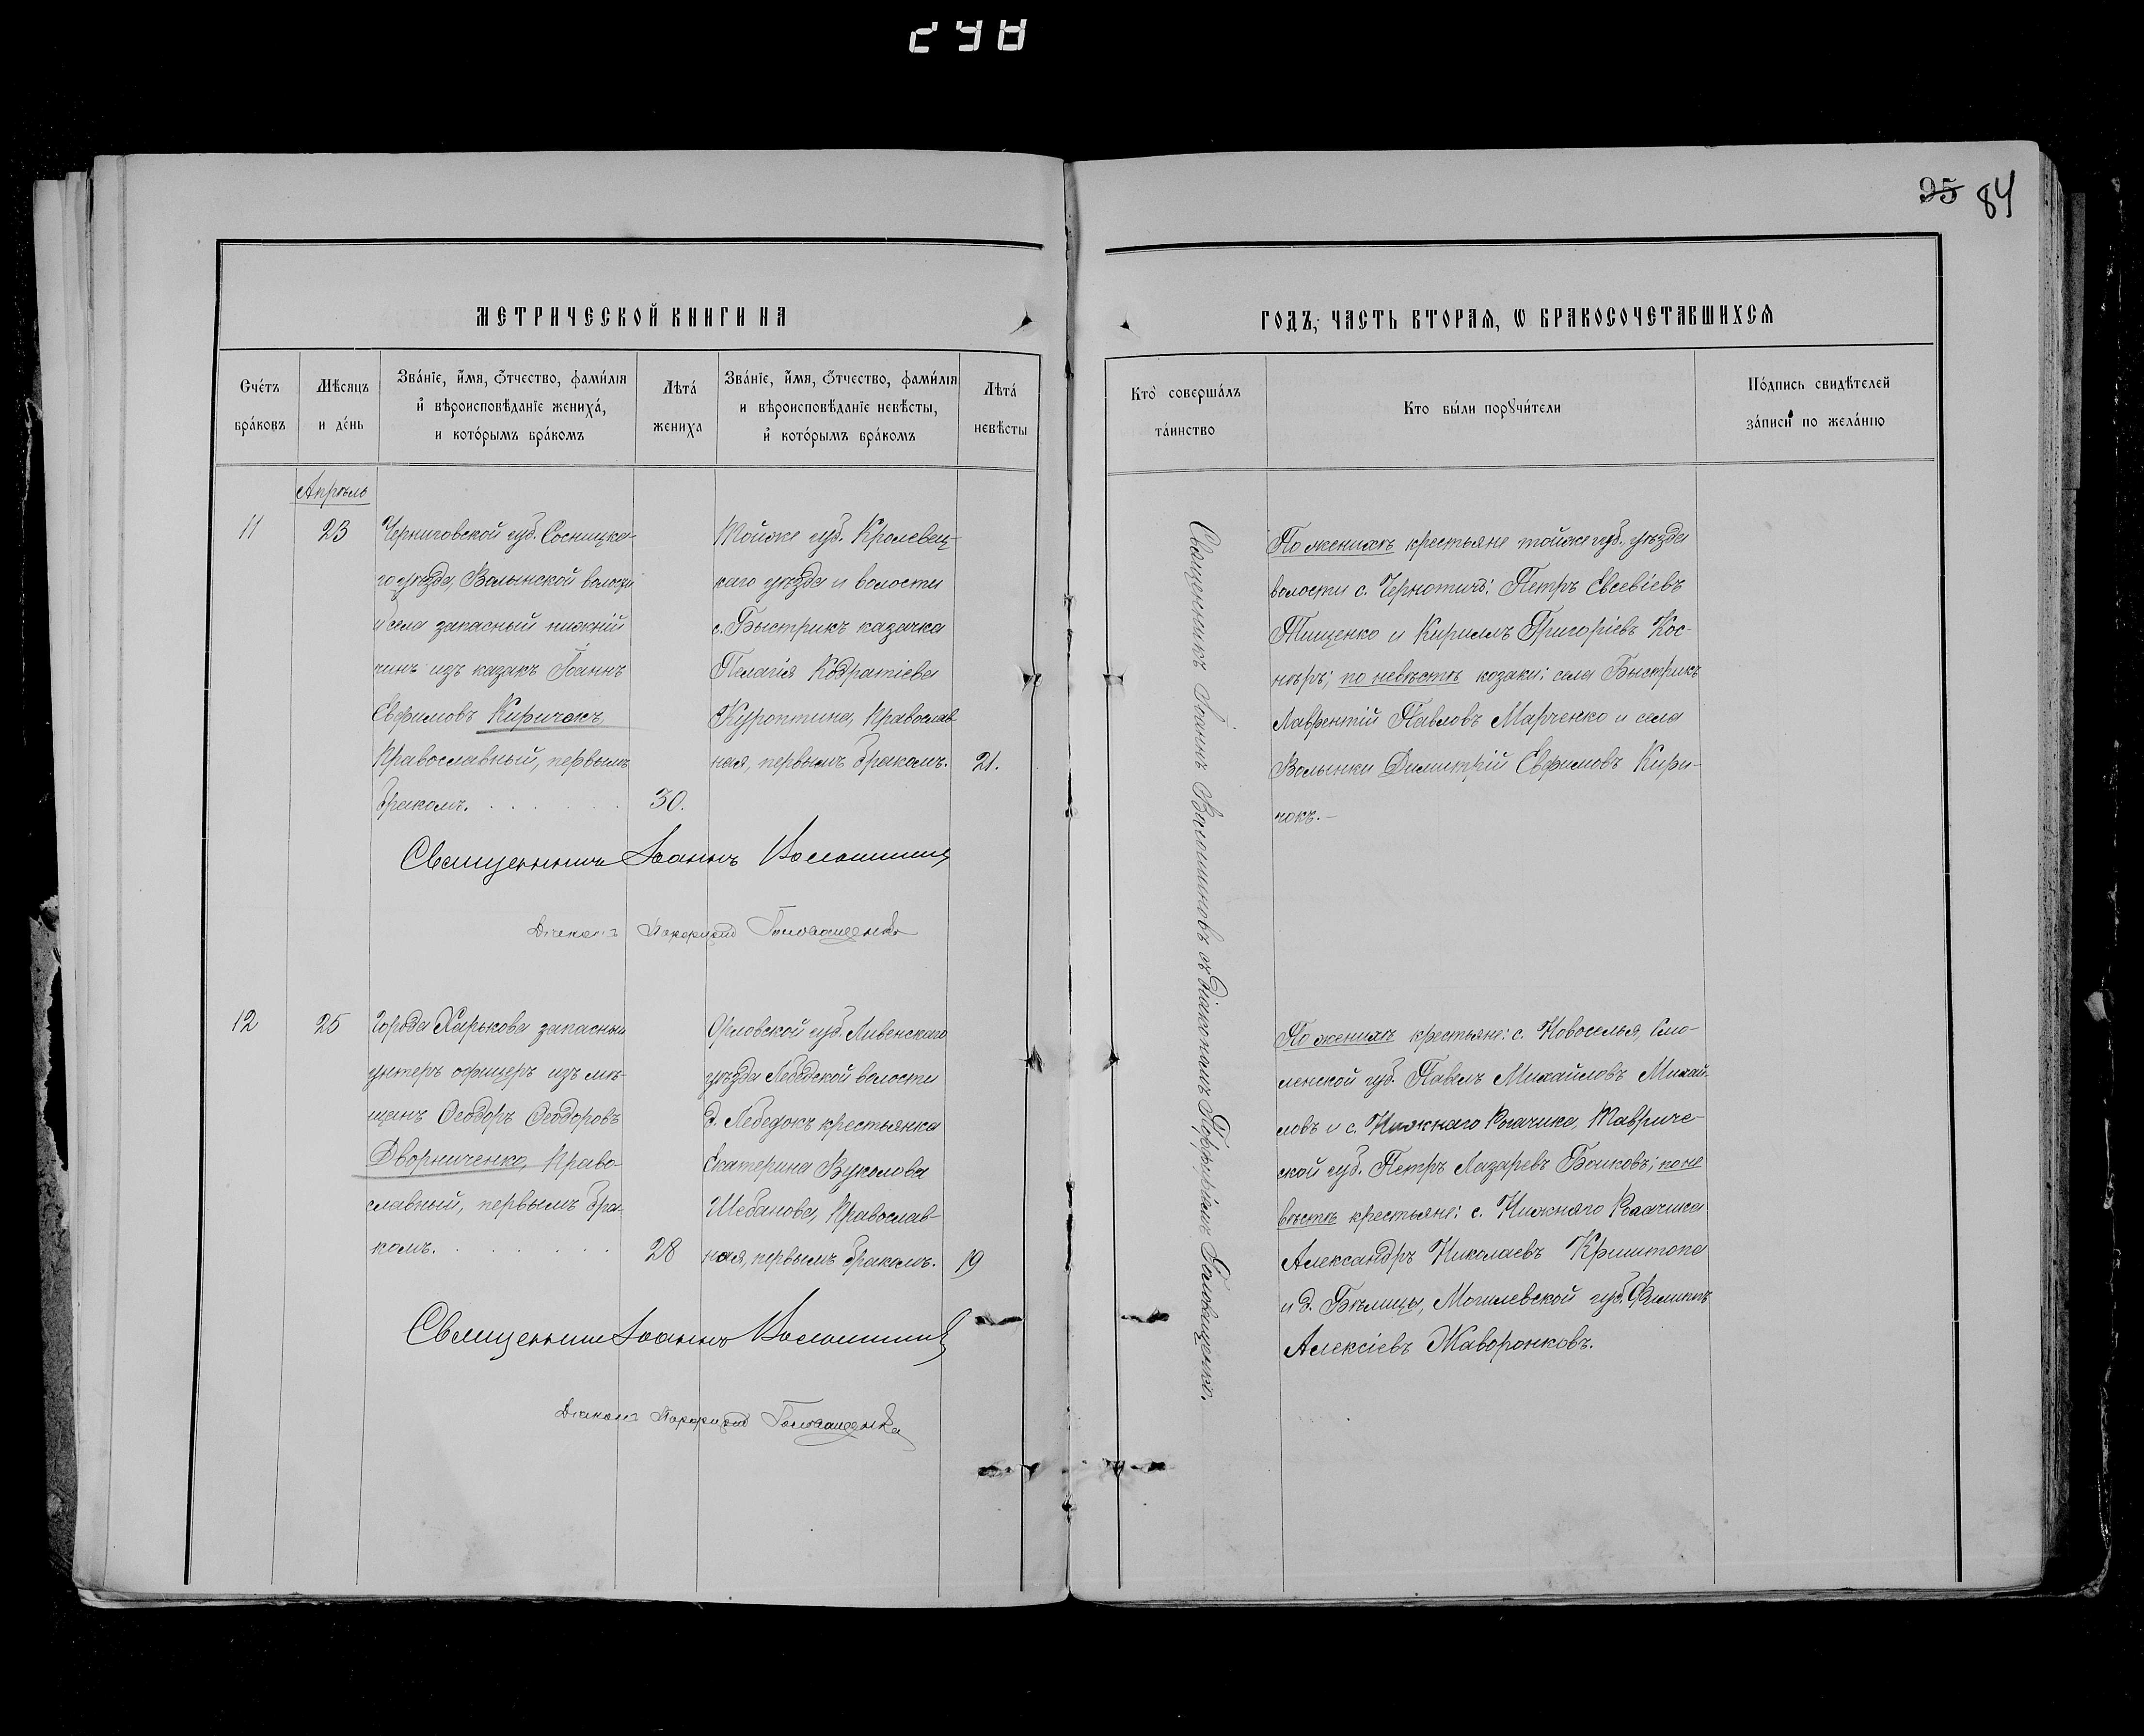 298
95 84
МЕТРИЧЕСКОЙ КНИГИ НА
ГОДЪ, ЧАСТЬ ВТОРАЯ, Ѡ БРАКОСОЧЕТАВШИХСЯ
Счéтъ брáковъ
Мѣсяцъ и дéнь
Звáнїе, и́мя, ѻ́тчество, фами́лїя
и҆ вѣроисповѣ́данїе женихá,
и котóрымъ брáкомъ
Лѣтá жениха
Звáнїе, и́мя, ѻ́тчество, фами́лїя
и вѣроисповѣ́данїе невѣ́сты,
и҆ котóрымъ брáкомъ
Лѣтá невѣ́сты
Кто̀ совершáлъ тáинство
Кто бы́ли порꙋчи́тели
Пóдпись свидѣ́телей
зáписи по желáнїю
Апрѣль
11
23
Черниговской губ. Сосницка-
го уѣзда, Волынской волости
и села запасный нижній
чинъ изъ казакъ Іоаннъ
Евфимовъ Киричокъ,
Православный, первымъ
бракомъ.
30.
Тойже губ. Кролевец-
каго уѣзда и волости
с. Быстрикъ казачка
Пелагія Кодратіева
Куроптина, Православ
ная, первымъ бракомъ.
21.
Священникъ Іоаннъ Волошиновъ съ діакономъ Порфиріемъ Головащенко.
По женихѣ крестьяне тойже губ. уѣзда
волости с. Чернотичъ: Петръ Евсевіевъ
Тищенко и Кириллъ Григоріевъ Кос-
нѣръ; по невѣстѣ козаки: села Быстрикъ
Лаврентій Павловъ Марченко и села
Волынки Димитрій Евфимовъ Кири-
чокъ.
Священникъ Іоаннъ Волошинов
Діаконъ Порфирій Головащенко
12
25
Города Харькова запасный
унтеръ офицеръ изъ мѣ-
щанъ Ѳеодоръ Ѳеодоровъ
Дворниченко, Право-
славный, первымъ бра-
комъ.
28
Орловской губ. Ливенскаго
уѣзда Лебедской волости
д. Лебедокъ крестьянка
Екатерина Вуколова
Шебанова, Православ-
ная, первымъ бракомъ.
19
По женихѣ крестьяне: с. Новоселья, Смо-
ленской губ. Павелъ Михайловъ Михай-
ловъ и с. Нижняго Рогачика, Тавриче-
ской губ. Петръ Лазаревъ Баиковъ; по не
вѣстѣ крестьяне: с. Нижняго Рогачика
Александръ Николаевъ Криштопа
и д. Бѣлицы, Могилевской губ. Филиппъ
Алексіевъ Жаворонковъ.
Священник Іоаннъ Волошинов
Діаконъ Порфирій Головащенко